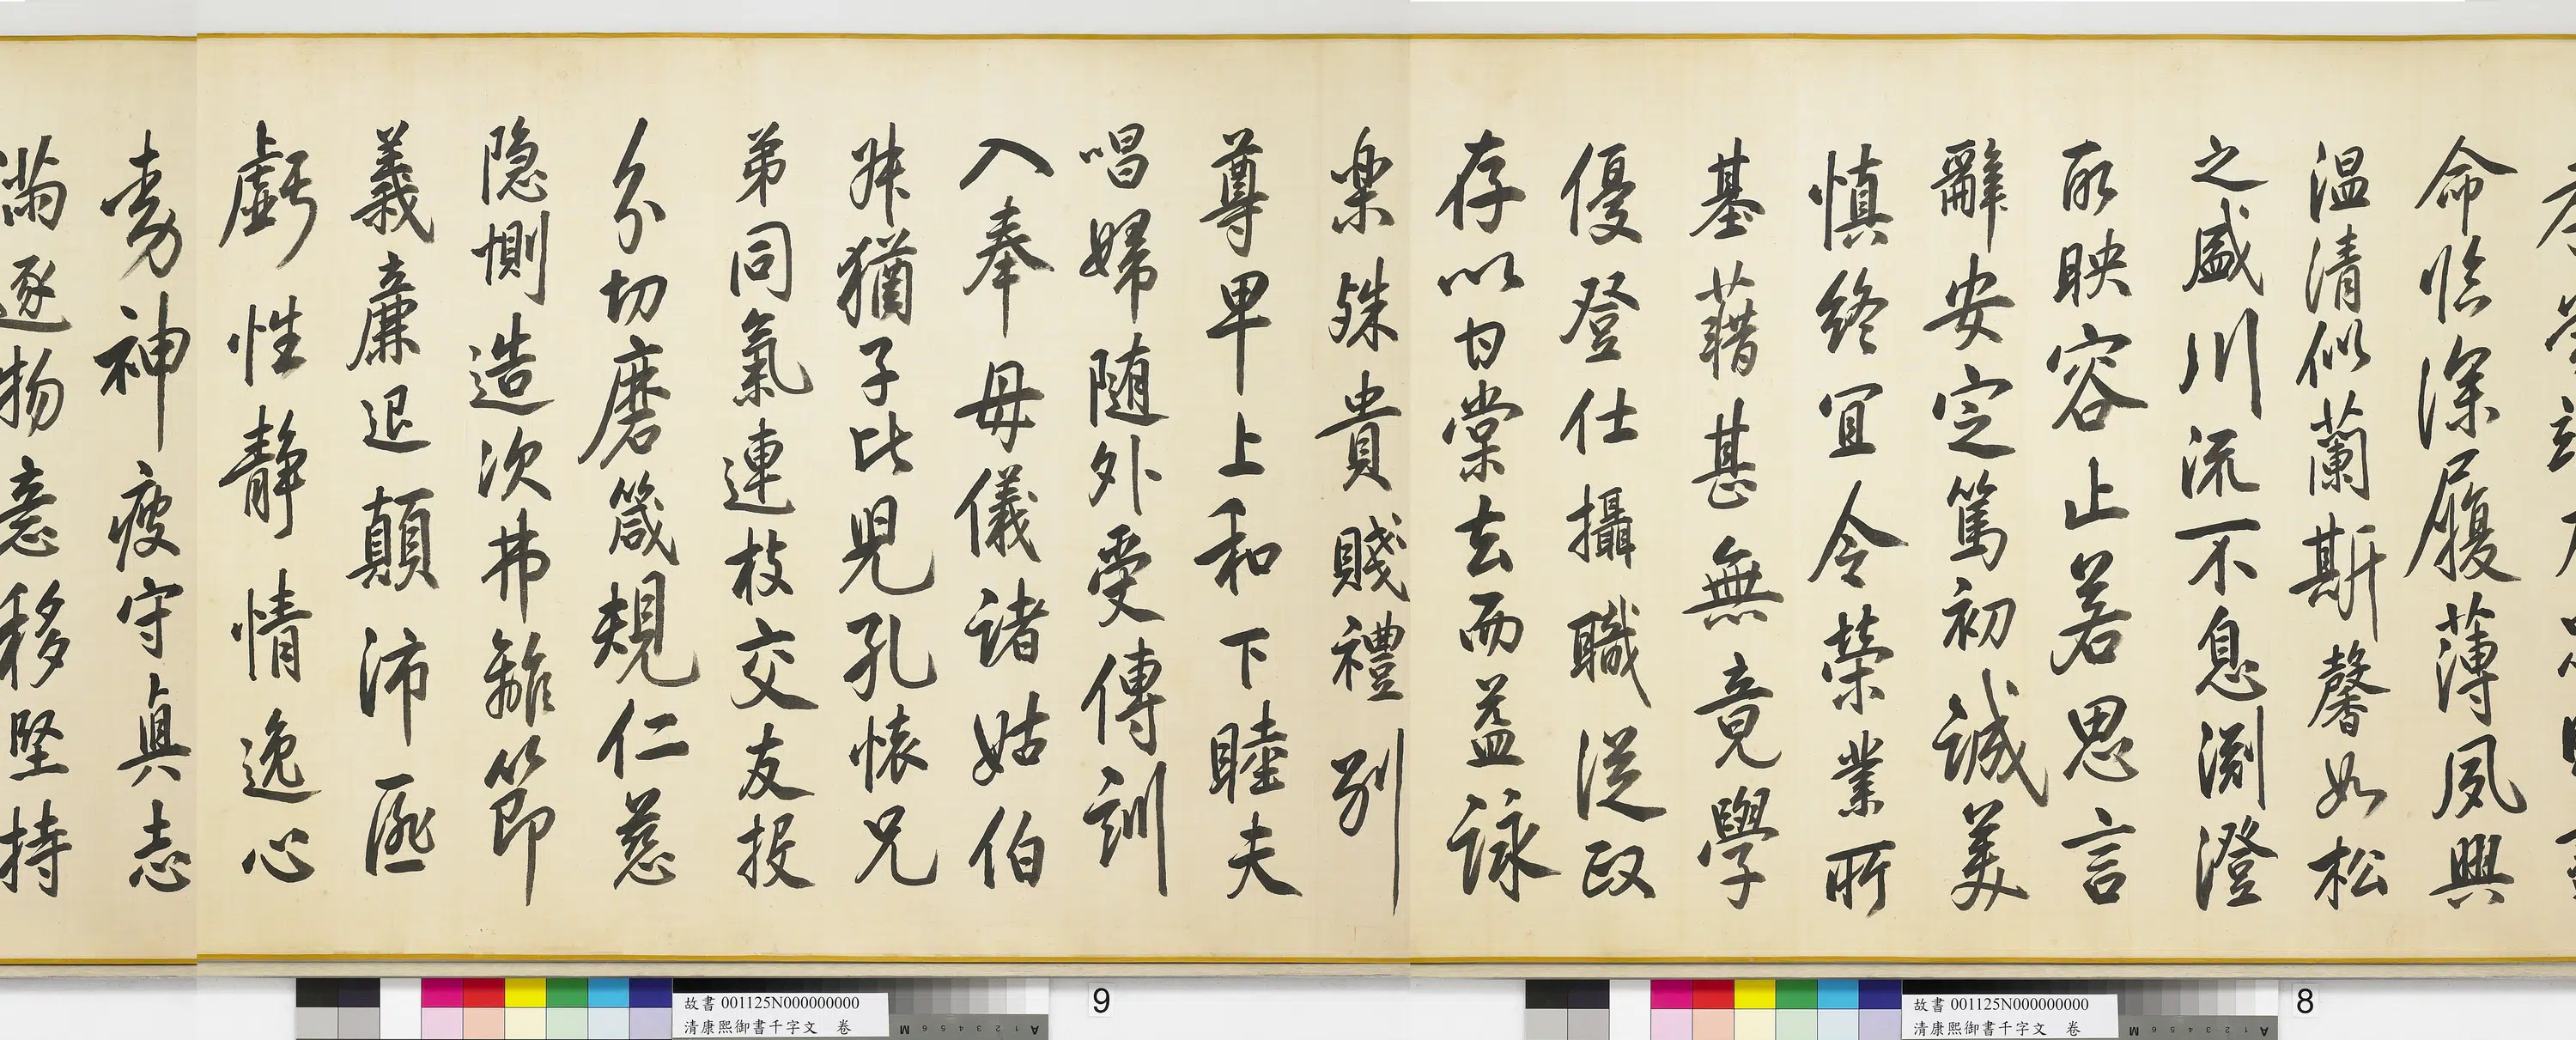 命臨深履薄夙興
温清似蘭斯馨如松
之盛川流不息淵澄
取映容止若思言
辭安定篤初誠美
慎終宜令榮業所
基藉甚無竟學
優登仕攝職從政
存以甘棠去而益詠
楽殊貴賤禮别
尊卑上和下睦夫
唱婦随外受傅訓
入奉母儀諸姑伯
叔猶子比兒孔懷兄
弟同氣連枝交友投
分切磨箴規仁慈
隐惻造次弗離節
義廉退顛沛匪
虧性靜情逸心
動神疲守真志
滿逐物意移堅持
故書 001125N000000000
清康熙御書千字文 卷
8
故書 001125N000000000
清康熙御書千字文 卷
9